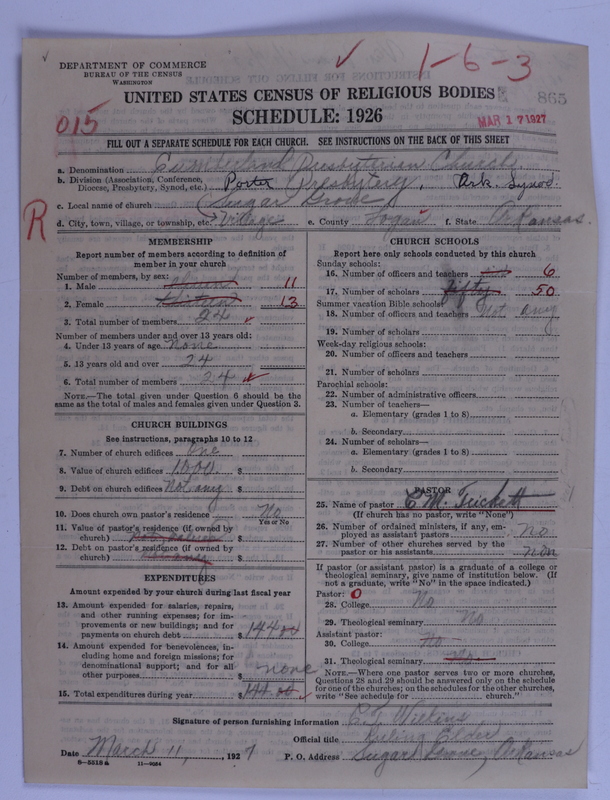 DEPARTMENT OF COMMERCE
BUREAU OF THE CENSUS
WASHINGTON
1-6-3
UNITED STATES CENSUS OF RELIGIOUS BODIES
865
SCHEDULE: 1926
MAR 17 1927
015
FILL OUT A SEPARATE SCHEDULE FOR EACH CHURCH. SEE INSTRUCTIONS ON THE BACK OF THIS SHEET
a. Denomination Cumberland Presbyterian Church
b. Division (Association, Conference, Diocese, Presbytery, Synod, etc.) Porter Presbytery, Ark. Synod
c. Local name of church Sugar Grove
R
d. City, town, village, or township, etc. Village e. County Logan f. State Arkansas.
MEMBERSHIP
Report number of members according to definition of member in your church
Number of members, by sex:
1. Male 11
2. Female Thirteen 13
3. Total number of members 24
Number of members under and over 13 years old:
4. Under 13 years of age None
5. 13 years old and over 24
6. Total number of members 24
NOTE.—The total given under Question 6 should be the same as the total of males and females given under Question 3.
CHURCH BUILDINGS
See instructions, paragraphs 10 to 12
7. Number of church edifices One
8. Value of church edifices 1000 $
9. Debt on church edifices Not any $
10. Does church own pastor's residence No
Yes or No
11. Value of pastor's residence (if owned by church) $
12. Debt on pastor's residence (if owned by church) $
EXPENDITURES
Amount expended by your church during last fiscal year
13. Amount expended for salaries, repairs, and other running expenses; for improvements or new buildings; and for payments on church debt $ 144.00
14. Amount expended for benevolences, including home and foreign missions; for denominational support; and for all other purposes $ none
15. Total expenditures during year $ 144.00
CHURCH SCHOOLS
Report here only schools conducted by this church
Sunday schools:
16. Number of officers and teachers 6
17. Number of scholars fifty 50
Summer vacation Bible schools:
18. Number of officers and teachers Not any
19. Number of scholars
Week-day religious schools:
20. Number of officers and teachers
21. Number of scholars
Parochial schools:
22. Number of administrative officers
23. Number of teachers—
a. Elementary (grades 1 to 8)
b. Secondary
24. Number of scholars—
a. Elementary (grades 1 to 8)
b. Secondary
PASTOR
25. Name of pastor C M. Trickett
(If church has no pastor, write "None")
26. Number of ordained ministers, if any, employed as assistant pastors No
27. Number of other churches served by the pastor or his assistants non
If pastor (or assistant pastor) is a graduate of a college or theological seminary, give name of institution below. (If not a graduate, write "No" in the space indicated.)
Pastor: 0
28. College No
29. Theological seminary No
Assistant pastor:
30. College No
31. Theological seminary No
NOTE.—Where one pastor serves two or more churches, Questions 28 and 29 should be answered only on the schedule for one of the churches; on the schedules for the other churches, write "See schedule for church."
Signature of person furnishing information C. T. Wilkins
Official title Ruling Elder
Date March 11, 1927 P. O. Address Sugar Grove, Arkansas
8-5518a 11-9064